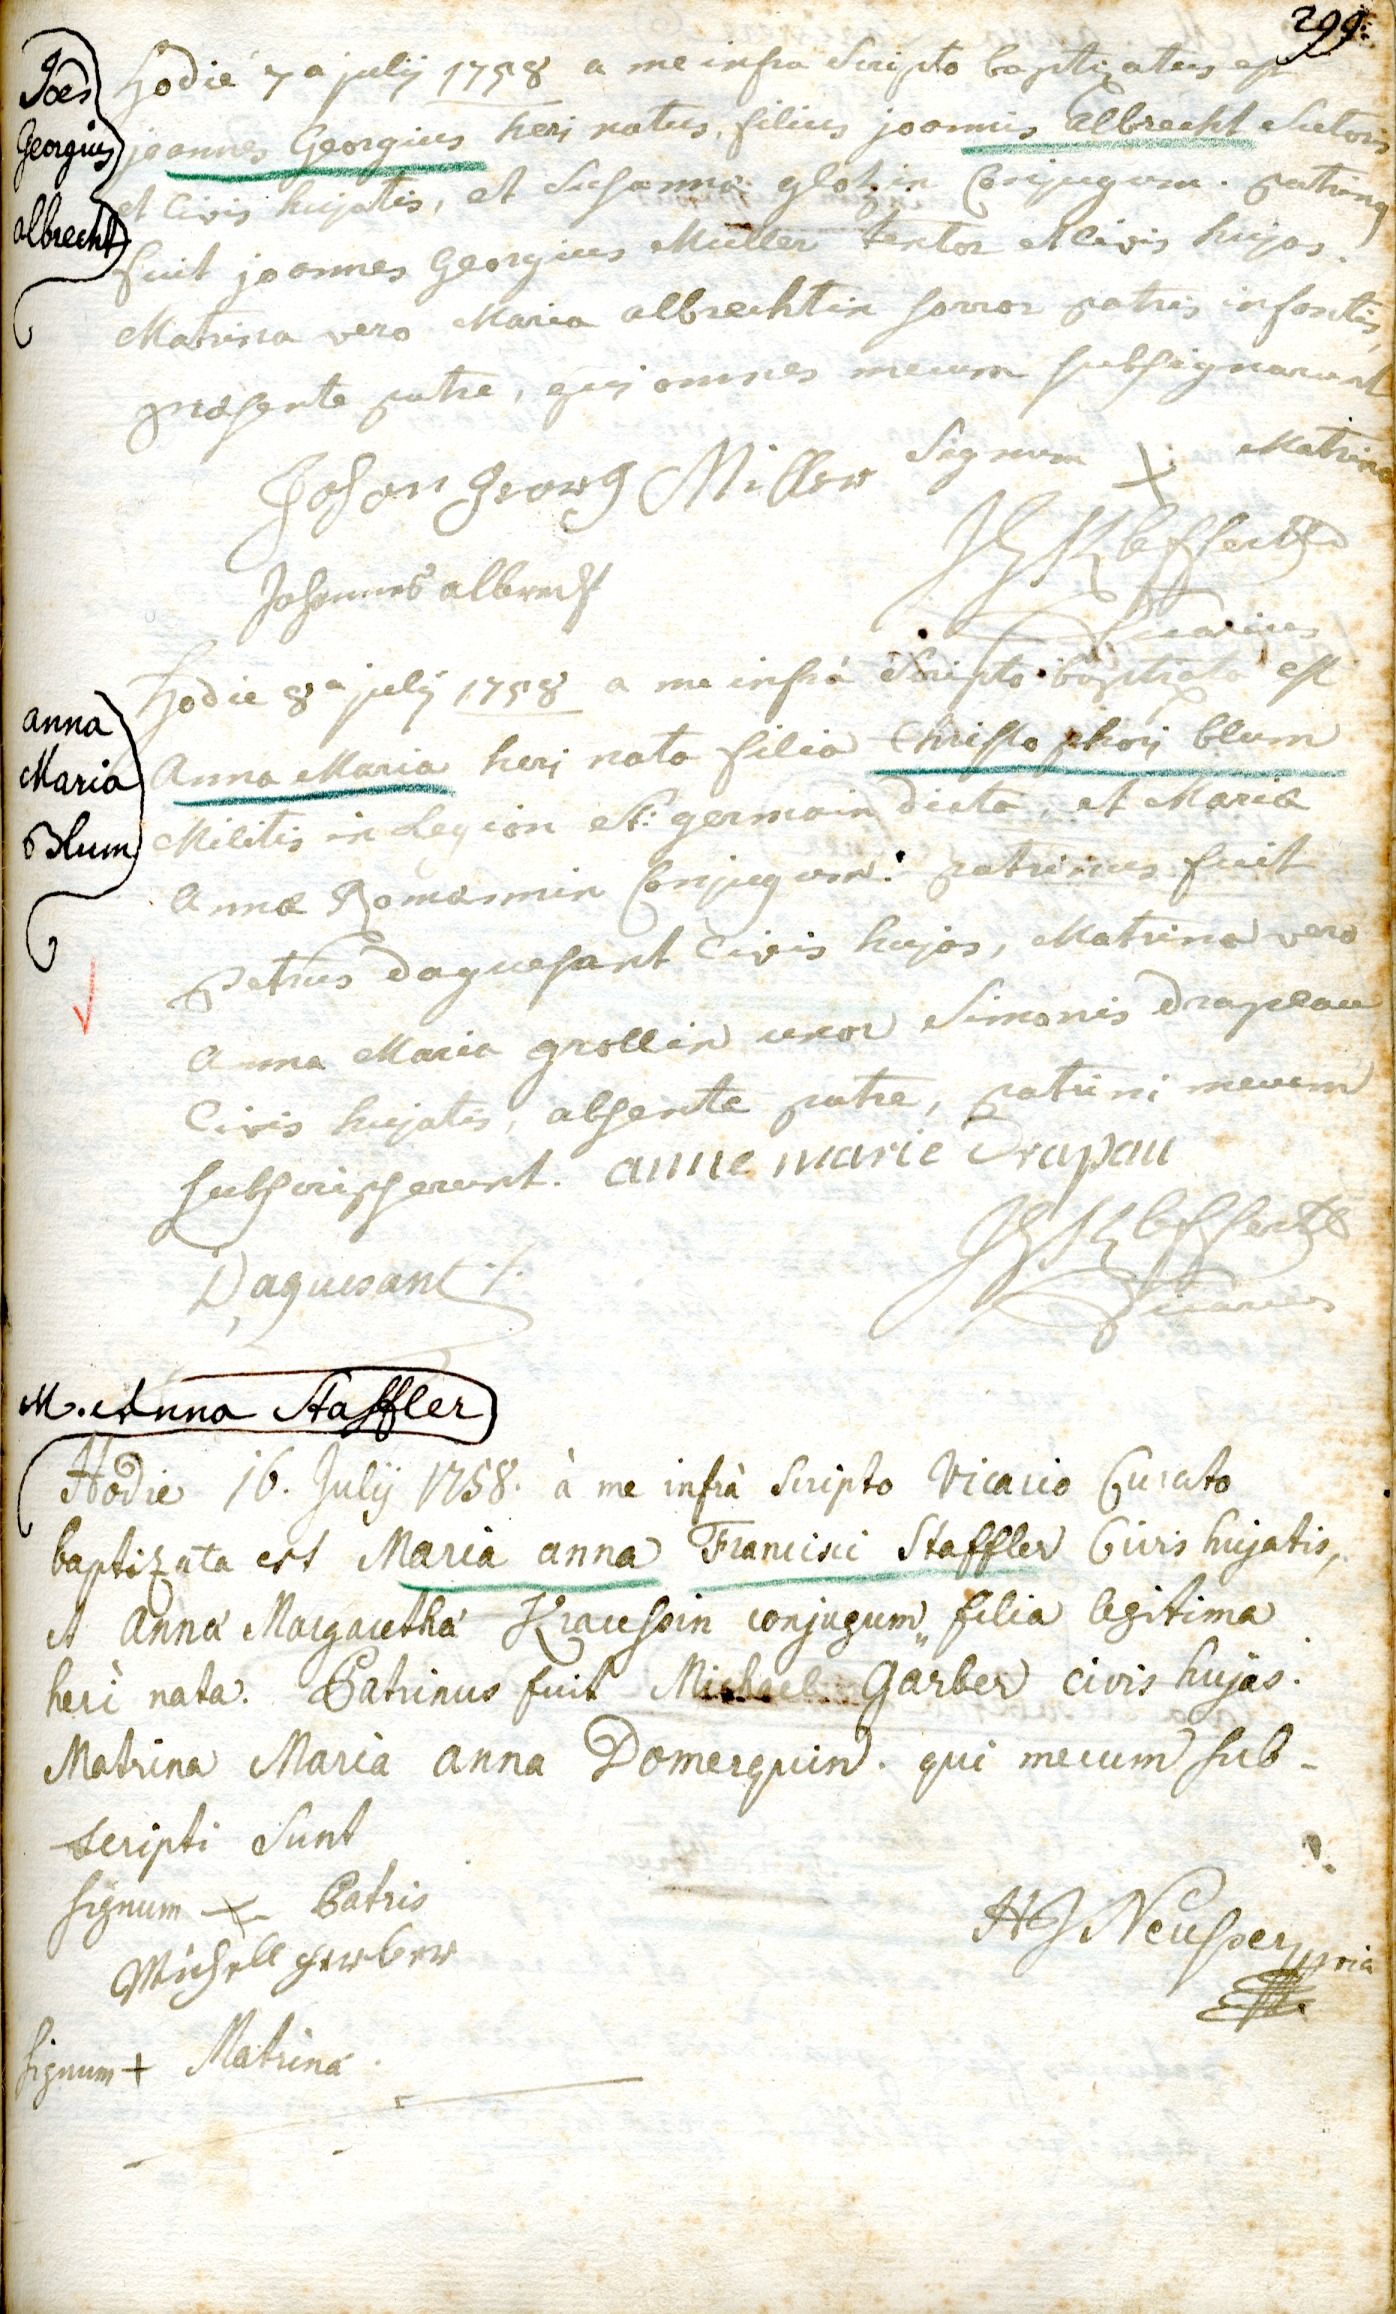 299.
Joës
Georgius
albrecht
Hodie 7a julij 1758 a me infra Scripto baptizatus est
joannes Georgius heri natus, filius joannis Albrecht Sutoris
et Civis hujatis, et Susanna glotzin Conjugum. patrinus
fuit joannes Georgius Müller textor et civis hujas.
Matrina vero Maria albrechtin sorror patris infantis,
præsente patre, qui omnes mecum subsignarunt
Johan Georg Miller Signum X Matrinæ
Johannes albrecht
Vicarius
anna
Maria
Blum
Hodie 8a julij 1758 a me infrà Scripto baptizata est
Anna Maria heri nata filia Christophori blum
Militis in Legion St: germain dicta, et Mariæ
Annæ Romannin Conjugum: patrinus fuit
petrus daguesant Civis hujas, Matrina vero
Anna Maria grollin uxor Simonis Drapeau
Civis hujatis, absente patre, patrini mecum
subscripserunt. anne marie Drapau
Daguesant
Vicarius
M. Anna Staffler
Hodie 16. Julij 1758. à me infrà Scripto Vicario Curato
baptizata est Maria anna Francisci Staffler Civis hujatis,
et Anna Margaretha Kraussin conjugum, filia legitima
heri nata. Patrinus fuit Michael Garber civis hujas.
Matrina Maria anna Domerquin. qui mecum sub-
scripti Sunt
signum X Patris
Michell gerber
HJ Neusser mpria
signum + Matrina.